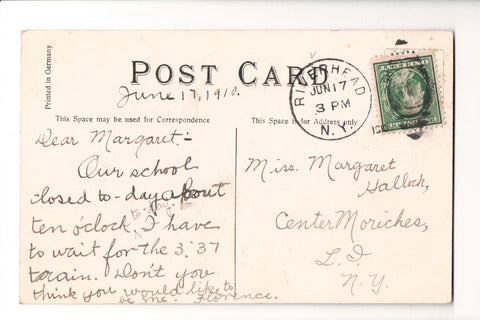 Printed in Germany
POST CARD
June 17, 1910.
This Space may be used for Correspondence
Dear Margaret:-
Our school
closed to-day about
ten o'clock, I have
to wait for the 3:37
train. Don't you
think you would like to
be me. Florence.
This Space is for Address only
RIVERHEAD
JUN 17
3 PM
N.Y.
Miss. Margaret
Hallock,
Center Moriches,
L.I.
N.Y.